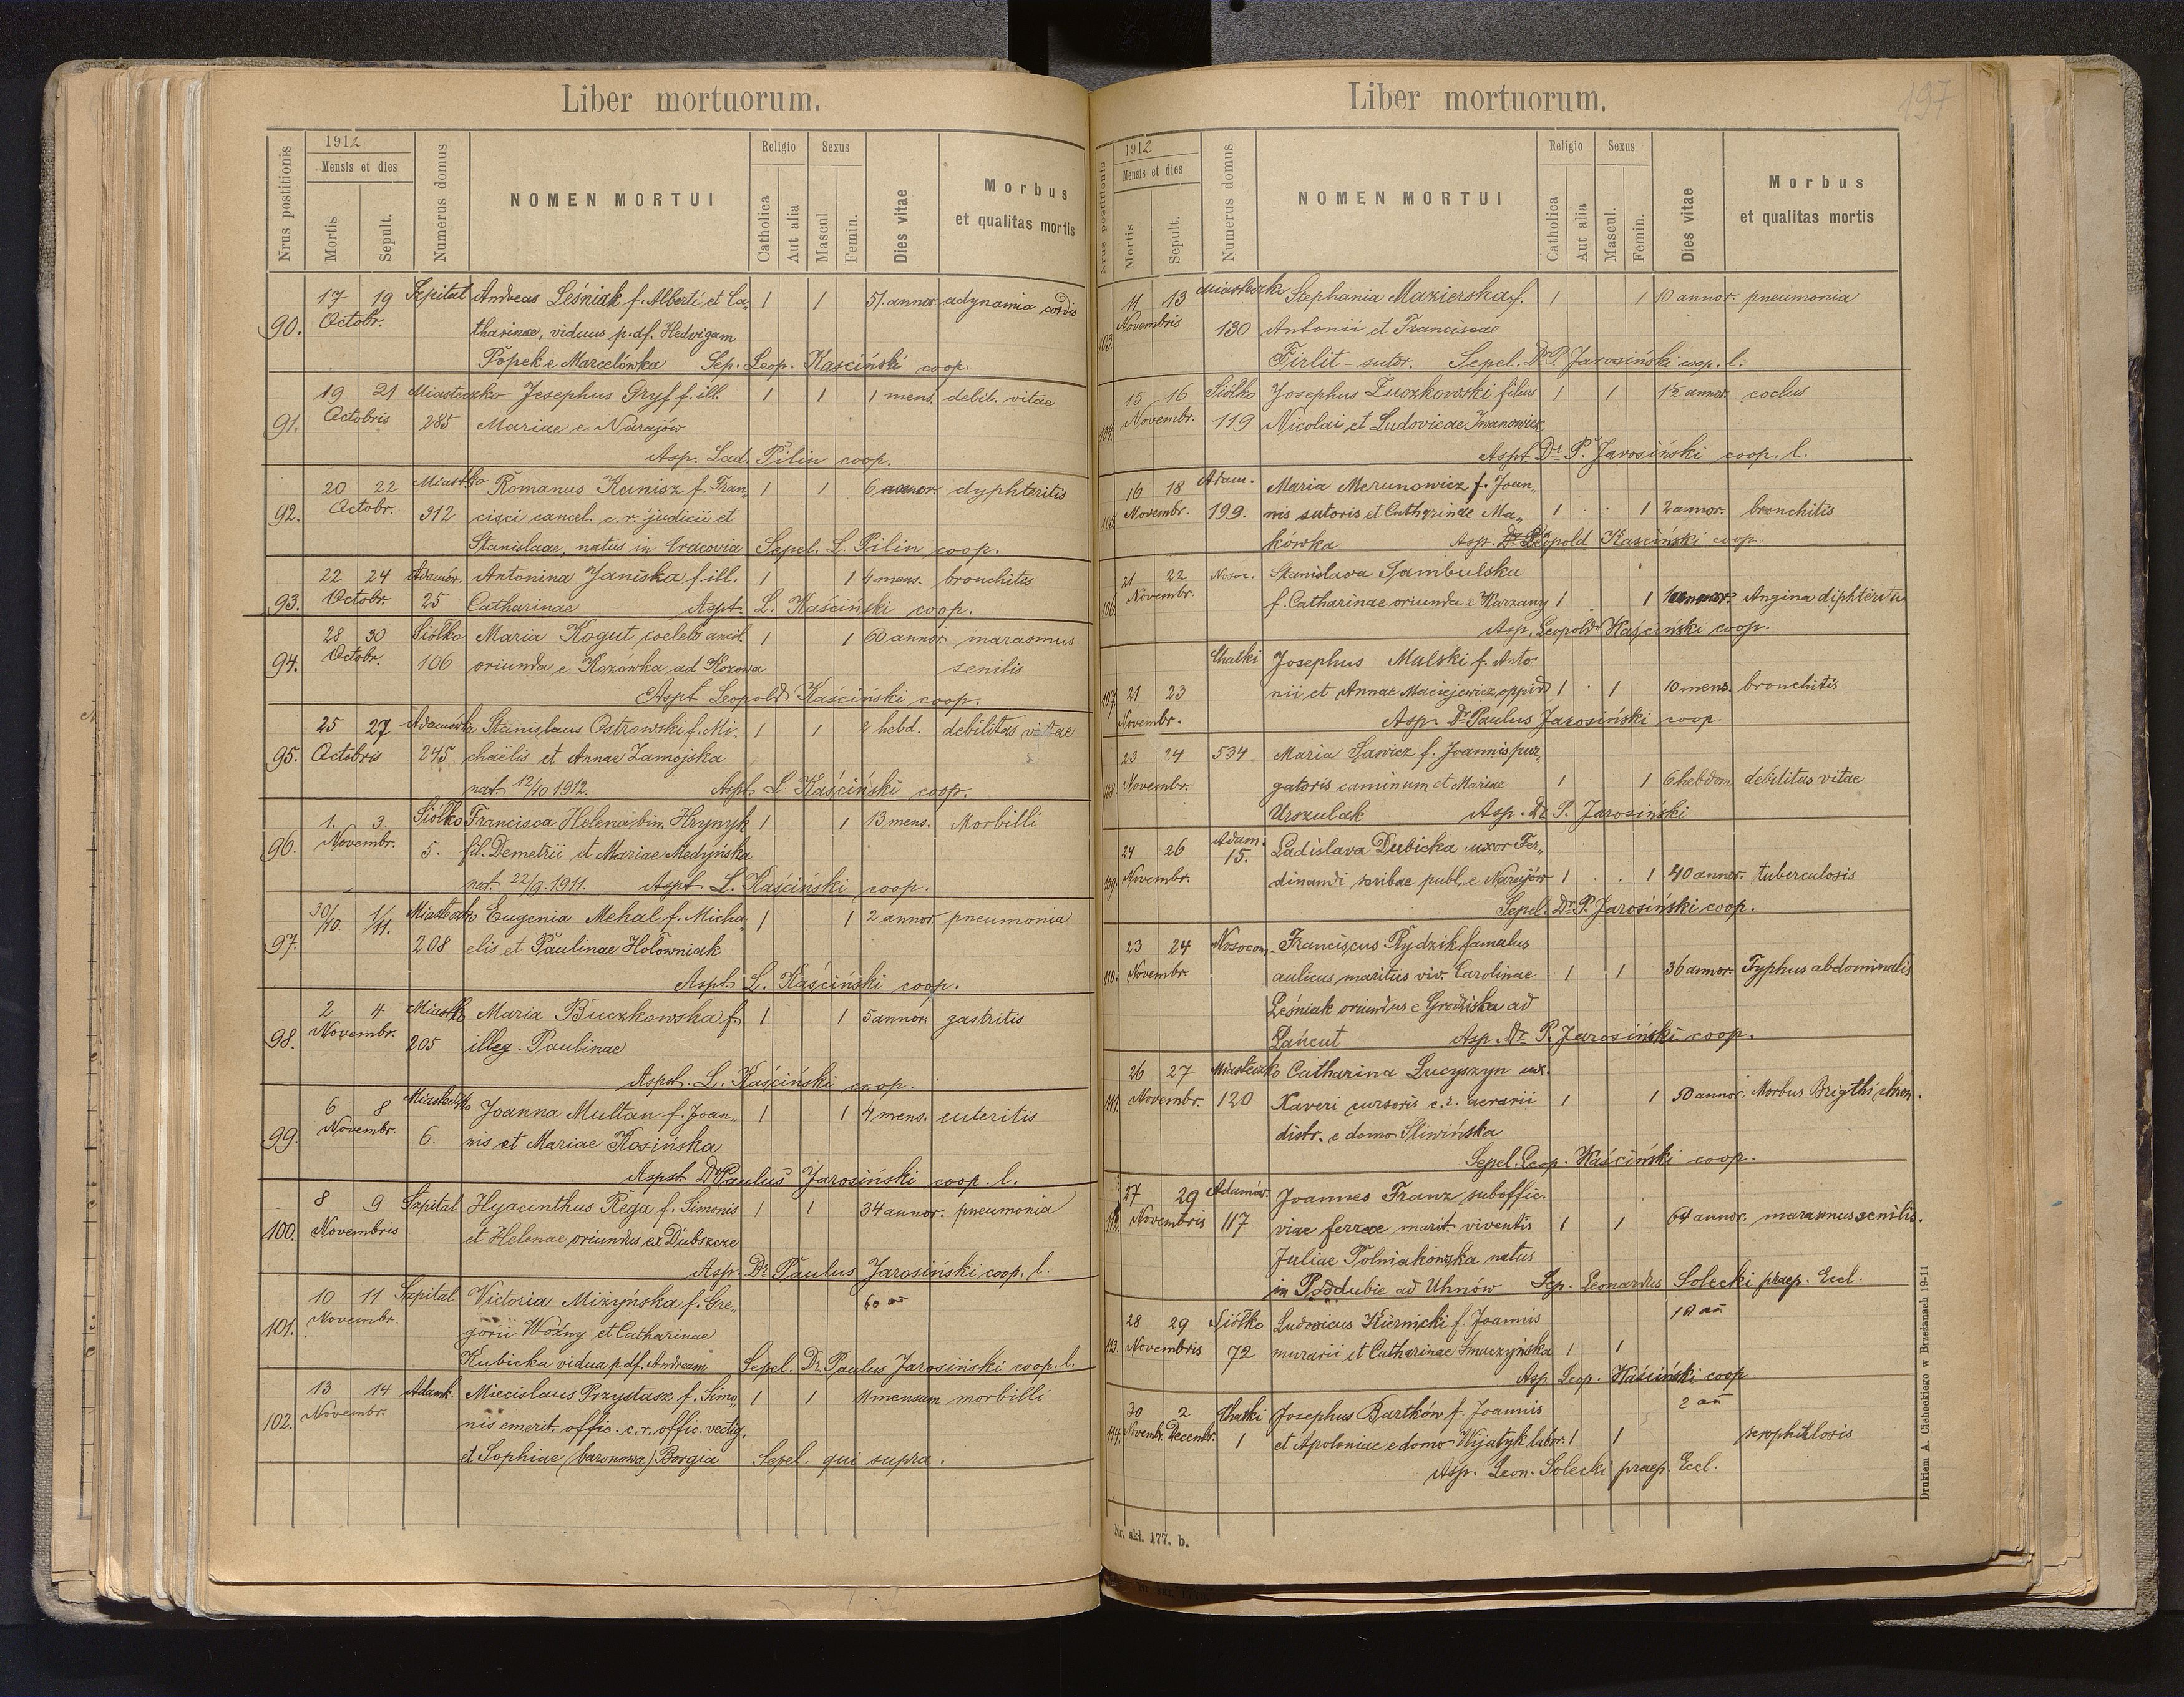 Liber mortuorum.
Nrus postitionis
1912
Mensis et dies
Mortis
Sepult.
Numerus domus
NOMEN MORTUI
Religio
Catholica
Aut alia
Sexus
Mascul.
Femin.
Dies vitae
Morbus
et qualitas mortis
17 19 Szpital Andreas Leśniak f. Alberti et Ca, 1 1 51. annor. adynamia cordis
90. Octobr. tharinae, viduus p. df. Hedvigam
Popek e Marcelówka Sep. Leop. Kaściński coop.
19 21 Miasteczko Josephus Gryf f. ill. 1 1 1 mens. debil. vitae
91. Octobris 285 Mariae e Narajów
Asp. Lad. Pilin coop.
20 22 Miastko Romanus Kanisz f. Fran, 1 1 6 annor. dyphteritis
92. Octobr. 312 cisci cancel. c. r. judicii et
Stanislaae, natus in Cracovia Sepel. L. Pilin coop.
22 24 Adamów. Antonina Janiska f. ill. 1 1 4 mens. bronchitis
93. Octobr. 25 Catharinae Aspt. L. Kaściński coop.
28 30 Siółko Maria Kogut coelebs ancil. 1 1 60 annor. marasmus
94. Octobr. 106 oriunda e Kozówka ad Kozowa senilis
Aspt Leopold Kaściński coop.
25 27 Adamówka Stanislaus Ostrowski f. Mi- 1 1 2 hebd. debilitas vitae
95. Octobris 245 chaëlis et Annae Zamojska
nat. 12/10 1912. Aspt L. Kaściński coop.
1. 3. Siółko Francisca Helena bin. Hrynyk 1 1 13 mens. Morbilli
96. Novembr. 5. fil. Demetrii et Mariae Medyńska
nat. 22/9. 1911. Aspt. L. Kaściński coop.
30/10. 1/11. Miasteczko Eugenia Mehal f. Micha, 1 1 2 annor. pneumonia
97. 208 elis et Paulinae Hołowniak
Aspt. L. Kaściński coop.
2 4 Miastko Maria Buczkowska f. 1 1 5 annor. gastritis
98. Novembr. 205 illeg. Paulinae
Aspt. L. Kaściński coop.
6 8 Miasteczko Joanna Multan f. Joan,, 1 1 4 mens. enteritis
99. Novembr. 6. nis et Mariae Kosińska
Aspt. Dr Paulus Jarosiński coop. l.
8 9 Szpital Hyacinthus Rega f. Simonis 1 1 34 annor. pneumonia
100. Novembris et Helenae oriundus ex Dubszcze
Asp. Dr. Paulus Jarosiński coop. l.
10 11 Szpital Victoria Miżyńska f. Gre,, 60 an̄
101. Novembr. gorii Woźny et Catharinae
Kubicka vidua p. df. Andream Sepel. Dr. Paulus Jarosiński coop. l.
13 14 Adamk. Miecislaus Przystasz f. Simo, 1 1 11 mensum morbilli
102. Novembr. nis emerit. offic. c. r. offic. vectig.
et Sophiae (baronowa) Borgia Sepel. qui supra.
197
Liber mortuorum.
Nrus postitionis
1912
Mensis et dies
Mortis
Sepult.
Numerus domus
NOMEN MORTUI
Religio
Catholica
Aut alia
Sexus
Mascul.
Femin.
Dies vitae
Morbus
et qualitas mortis
11 13 Miasteczko Stephania Mazierska f. 1 1 10 annor. pneumonia
103. Novembris 130 Antonii et Franciscae
Firlit - sutor. Sepel. Dr P. Jarosiński coop. l.
15 16 Siółko Josephus Łuczkowski filius 1 1 1½ annor. coclus
104. Novembr. 119 Nicolai et Ludovicae Iwanowicz
Aspt Dr. P. Jarosiński coop. l.
16 18 Adam. Maria Merunowicz f. Joan,,
105. Novembr. 199. nis sutoris et Catharinae Ma,, 1 1 2 annor. bronchitis
kówka Asp. Leopold Kaściński coop.
21 22 Nosoc. Stanislava Sambulska
106. Novembr. f. Catharinae oriunda e Kurzany 1 1 Angina diphteritis
Asp. Leopold Kaściński coop.
Chatki Josephus Mulski f. Anto-
107. 21 23 nii et Annae Maciejewicz, oppid 1 1 10 mens. bronchitis
Novembr. Asp. Dr Paulus Jarosiński coop.
23 24 534 Maria Sawicz f. Joannis pur,,
108. Novembr. gatoris caminum et Mariae 1 1 6 hebdom. debilitas vitae
Urszulak Asp. Dr. P. Jarosiński
24 26 Adam. 15. Ladislava Dubicka uxor Fer,,
109. Novembr. dinandi scribae publ. e Narajów 1 1 40 annor. tuberculosis
Sepel. Dr. P. Jarosiński coop.
23 24 Nosocom. Franciscus Rydzik famulus
110. Novembr. aulicus maritus viv. Carolinae 1 1 36 annor. Typhus abdominalis
Leśniak oriundus e Grodziska ad
Łańcut Asp. Dr. P. Jarosiński coop.
26 27 Miasteczko Catharina Lucyszyn ux.
111. Novembr. 120 Xaveri cursoris c. r. aerarii 1 1 50 annor. Morbus Brigthi chron.
distr. e domo Śliwińska
Sepel. Leop. Kaściński coop.
27 29 Adamów. Joannes Franz suboffic.
112. Novembris 117 viae ferreae marit. viventis 1 1 64 annor. marasmus senilis.
Juliae Polniakowska natus
in Poddubie ad Uhnów Sep. Leonardus Solecki praep. Eccl.
28 29 Siółko Ludovicus Kiernicki f. Joannis an̄
113. Novembris 72 murarii et Catharinae Smaczyńska 1 1
Asp. Leop. Kaściński coop.
30 2 Chatki Josephus Bartków f. Joannis 2 an̄
114. Novembr. Decembr. 1 et Apoloniae e domo Wijatyk labor. 1 1 scrophulosis
Asp. Leon. Solecki praep. Eccl.
Nr. skł. 177. b.
Drukiem A. Cichockiego w Brzeżanach 19-11